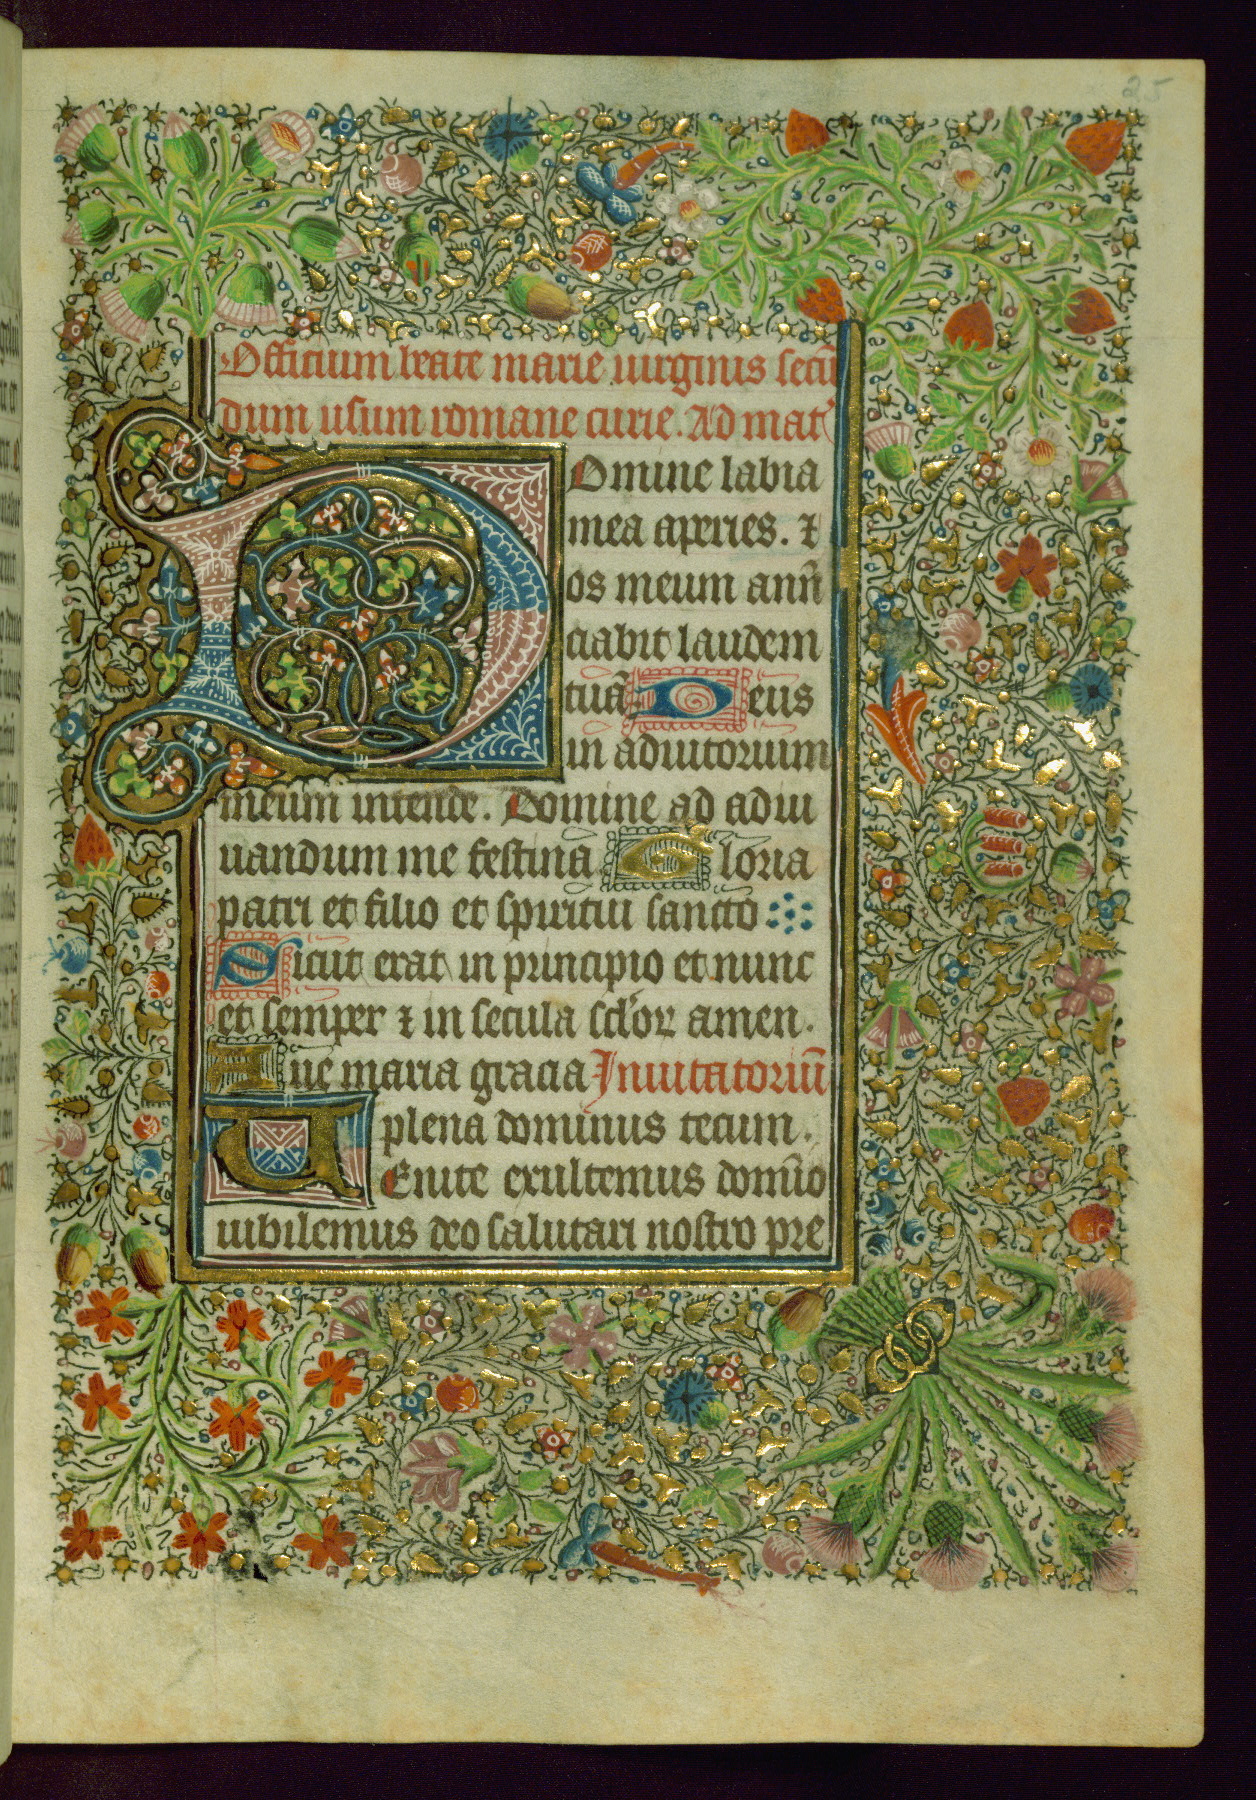 25
Officium beate marie uirginis secũ
dum usum romane curie. Ad mat'
Domine labia
mea aperies. ⁊
os meum annũ
ciabit laudem
tuã. Deus
in adiutorium
meum intende. Domine ad adiu
uandum me festina Gloria
patri et filio et spiritui sancto
Sicut erat in principio et nunc
et semper ⁊ in secula sclo'ꝝ amen.
Aue maria gracia Inuitatoriũ
plena dominus tecum.
Uenite exultemus domĩo
iubilemus deo salutari nostro pre